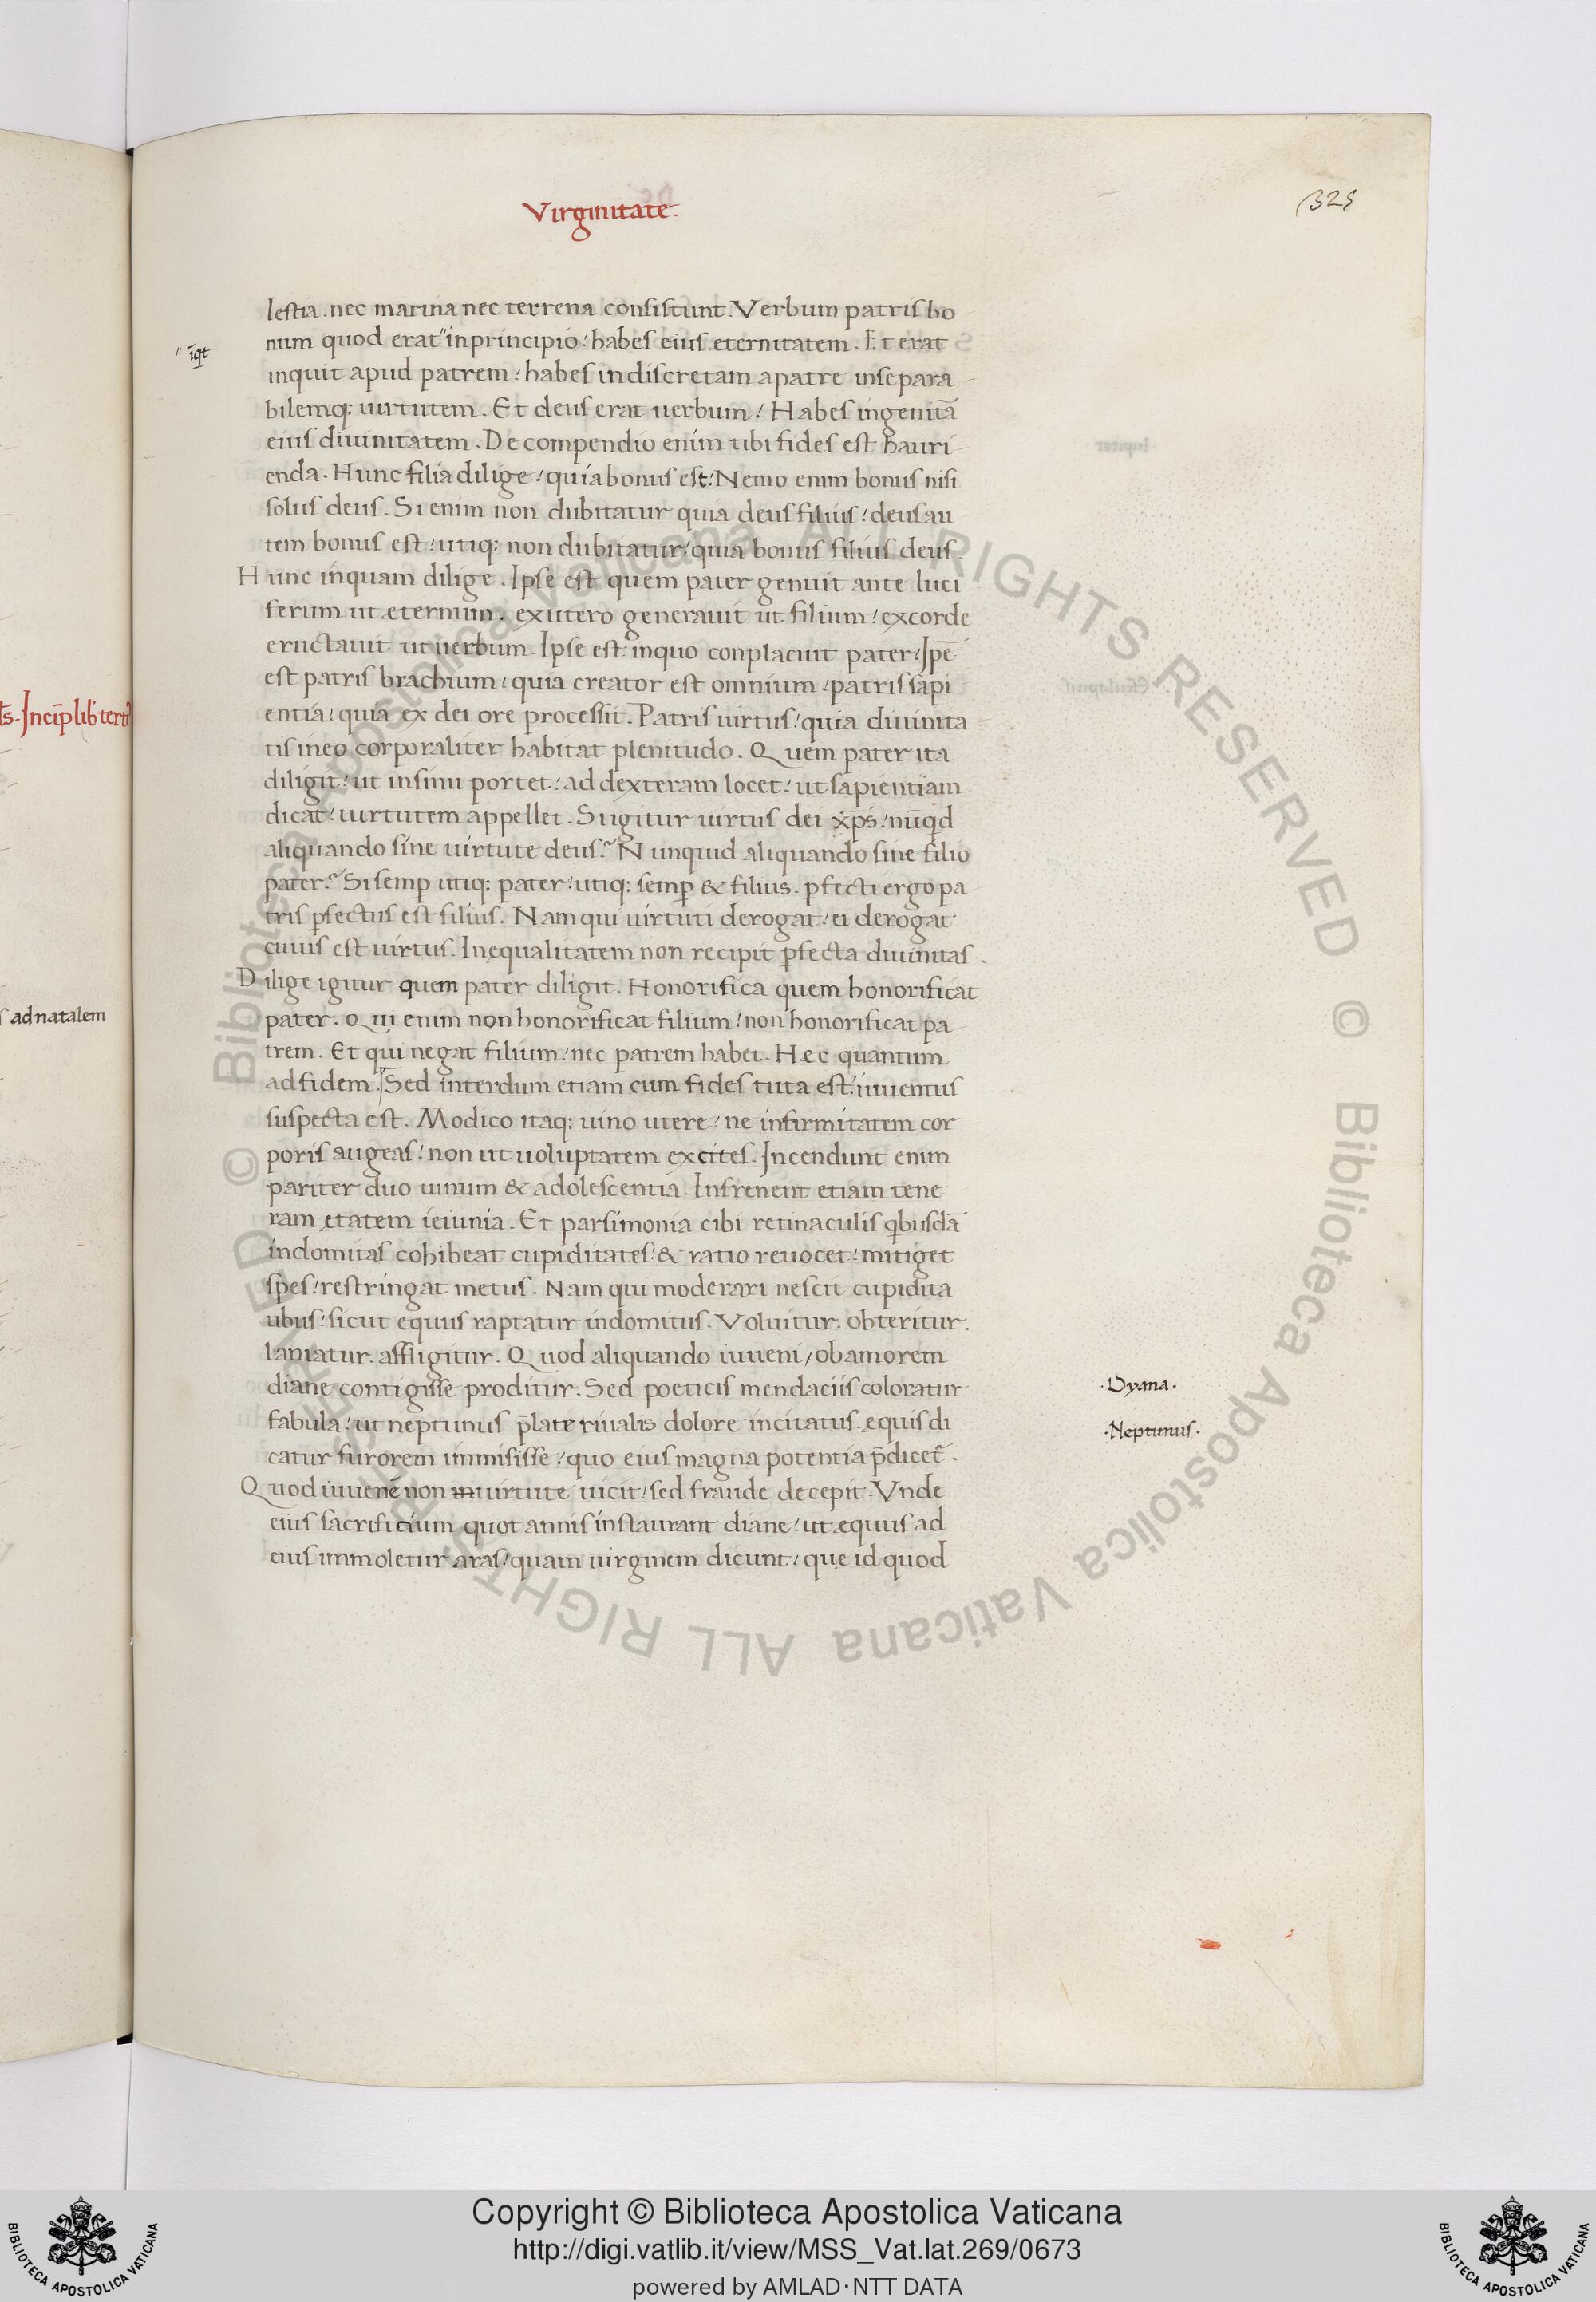 Virginitate.
325
lestia. nec marina nec terrena consistunt. Verbum patris bo
num quod erat" in principio: habes eius eternitatem. Et erat
" īqt
inquit apud patrem: habes indiscretam apatre insepara
bilemq; uirtutem. Et deus erat uerbum: Habes ingenitā
eius diuinitatem. De compendio enim tibi fides est hauri
enda. Hunc filia dilige: quia bonus est: Nemo enim bonus nisi
solus deus. Si enim non dubitatur quia deus filius: deus au
tem bonus est: utiq; non dubitatur: quia bonus filius deus.
Hunc inquam dilige. Ipse est quem pater genuit ante luci
ferum ut eternum. exutero generauit ut filium: excorde
eructauit ut uerbum. Ipse est inquo conplacuit pater: Ipē
est patris brachium: quia creator est omnium: patris sapi
entia: quia ex dei ore processit. Patris uirtus: quia diuinita
tis ineo corporaliter habitat plenitudo. Quem pater ita
diligit: ut insinu portet: ad dexteram locet: ut sapientiam
dicat: uirtutem appellet. Si igitur uirtus dei xp̄s: nūqd
aliquando sine uirtute deus? Nunquid aliquando sine filio
pater? Si semp utiq; pater: utiq; semp & filius. pfecti ergo pa
tris pfectus est filius. Nam qui uirtuti derogat: ei derogat
cuius est uirtus. Inequalitatem non recipit pfecta diuinitas.
Dilige igitur quem pater diligit. Honorifica quem honorificat
pater. Qui enim non honorificat filium: non honorificat pa
trem. Et qui negat filium: nec patrem habet. Hec quantum
ad fidem. Sed interdum etiam cum fides tuta est: iuuentus
suspecta est. Modico itaq; uino utere: ne infirmitatem cor
poris augeas: non ut uoluptatem excites. Incendunt enim
pariter duo uinum & adolescentia. Infrenent etiam tene
ram etatem ieiunia. Et parsimonia cibi retinaculis qbusdā
indomitas cohibeat cupiditates: & ratio reuocet: mitiget
spes: restringat metus. Nam qui moderari nescit cupidita
tibus: sicut equus raptatur indomitus. Voluitur. obteritur.
laniatur. affligitur. Quod aliquando iuueni, obamorem
diane contigisse proditur. Sed poeticis mendaciis coloratur
·Dyana·
fabula: ut neptunus p̄late riualis dolore incitatus equis di
·Neptunus·
catur furorem immisisse: quo eius magna potentia p̄dicet̄.
Quod iuuenē non in uirtute uicit: sed fraude decepit. Vnde
eius sacrificium quot annis instaurant diane: ut equus ad
eius immoletur aras: quam uirginem dicunt: que id quod
ts. Incip̄ lib' terti'
ad natalem
© Biblioteca Apostolica Vaticana ALL RIGHTS RESERVED © Biblioteca Apostolica Vaticana ALL RIGHTS RESERVED
Copyright © Biblioteca Apostolica Vaticana
http://digi.vatlib.it/view/MSS_Vat.lat.269/0673
powered by AMLAD·NTT DATA
BIBLIOTECA APOSTOLICA VATICANA
BIBLIOTECA APOSTOLICA VATICANA